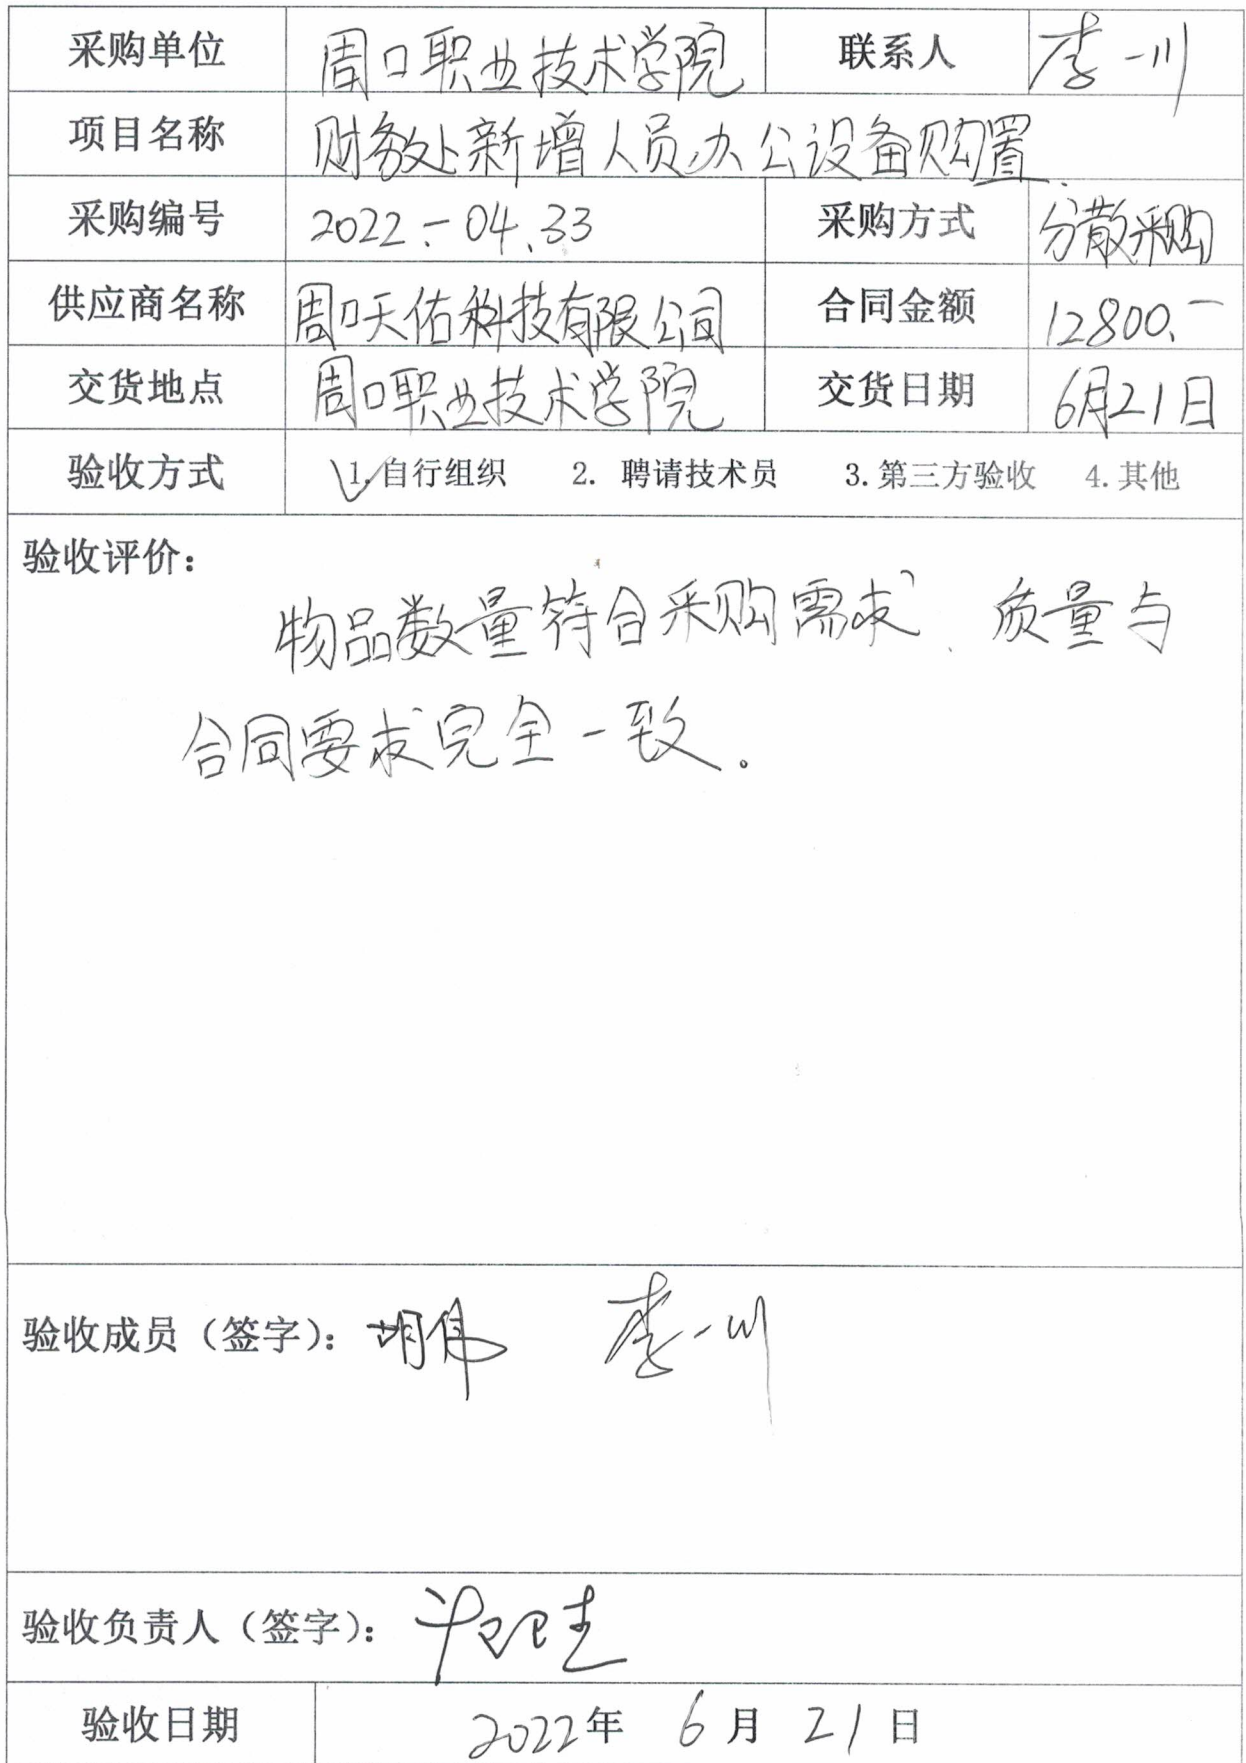 采购单位 周口职业技术学院 联系人 李一川
项目名称 财务处新增人员办公设备购置
采购编号 2022-04.33 采购方式 分散采购
供应商名称 周口天佑科技有限公司 合同金额 12800.-
交货地点 周口职业技术学院 交货日期 6月21日
验收方式 √1.自行组织 2. 聘请技术员 3.第三方验收 4.其他
验收评价：
物品数量符合采购需求、质量与
合同要求完全一致。
验收成员（签字）：胡伟 李一川
验收负责人（签字）：
验收日期 2022年 6月 21日